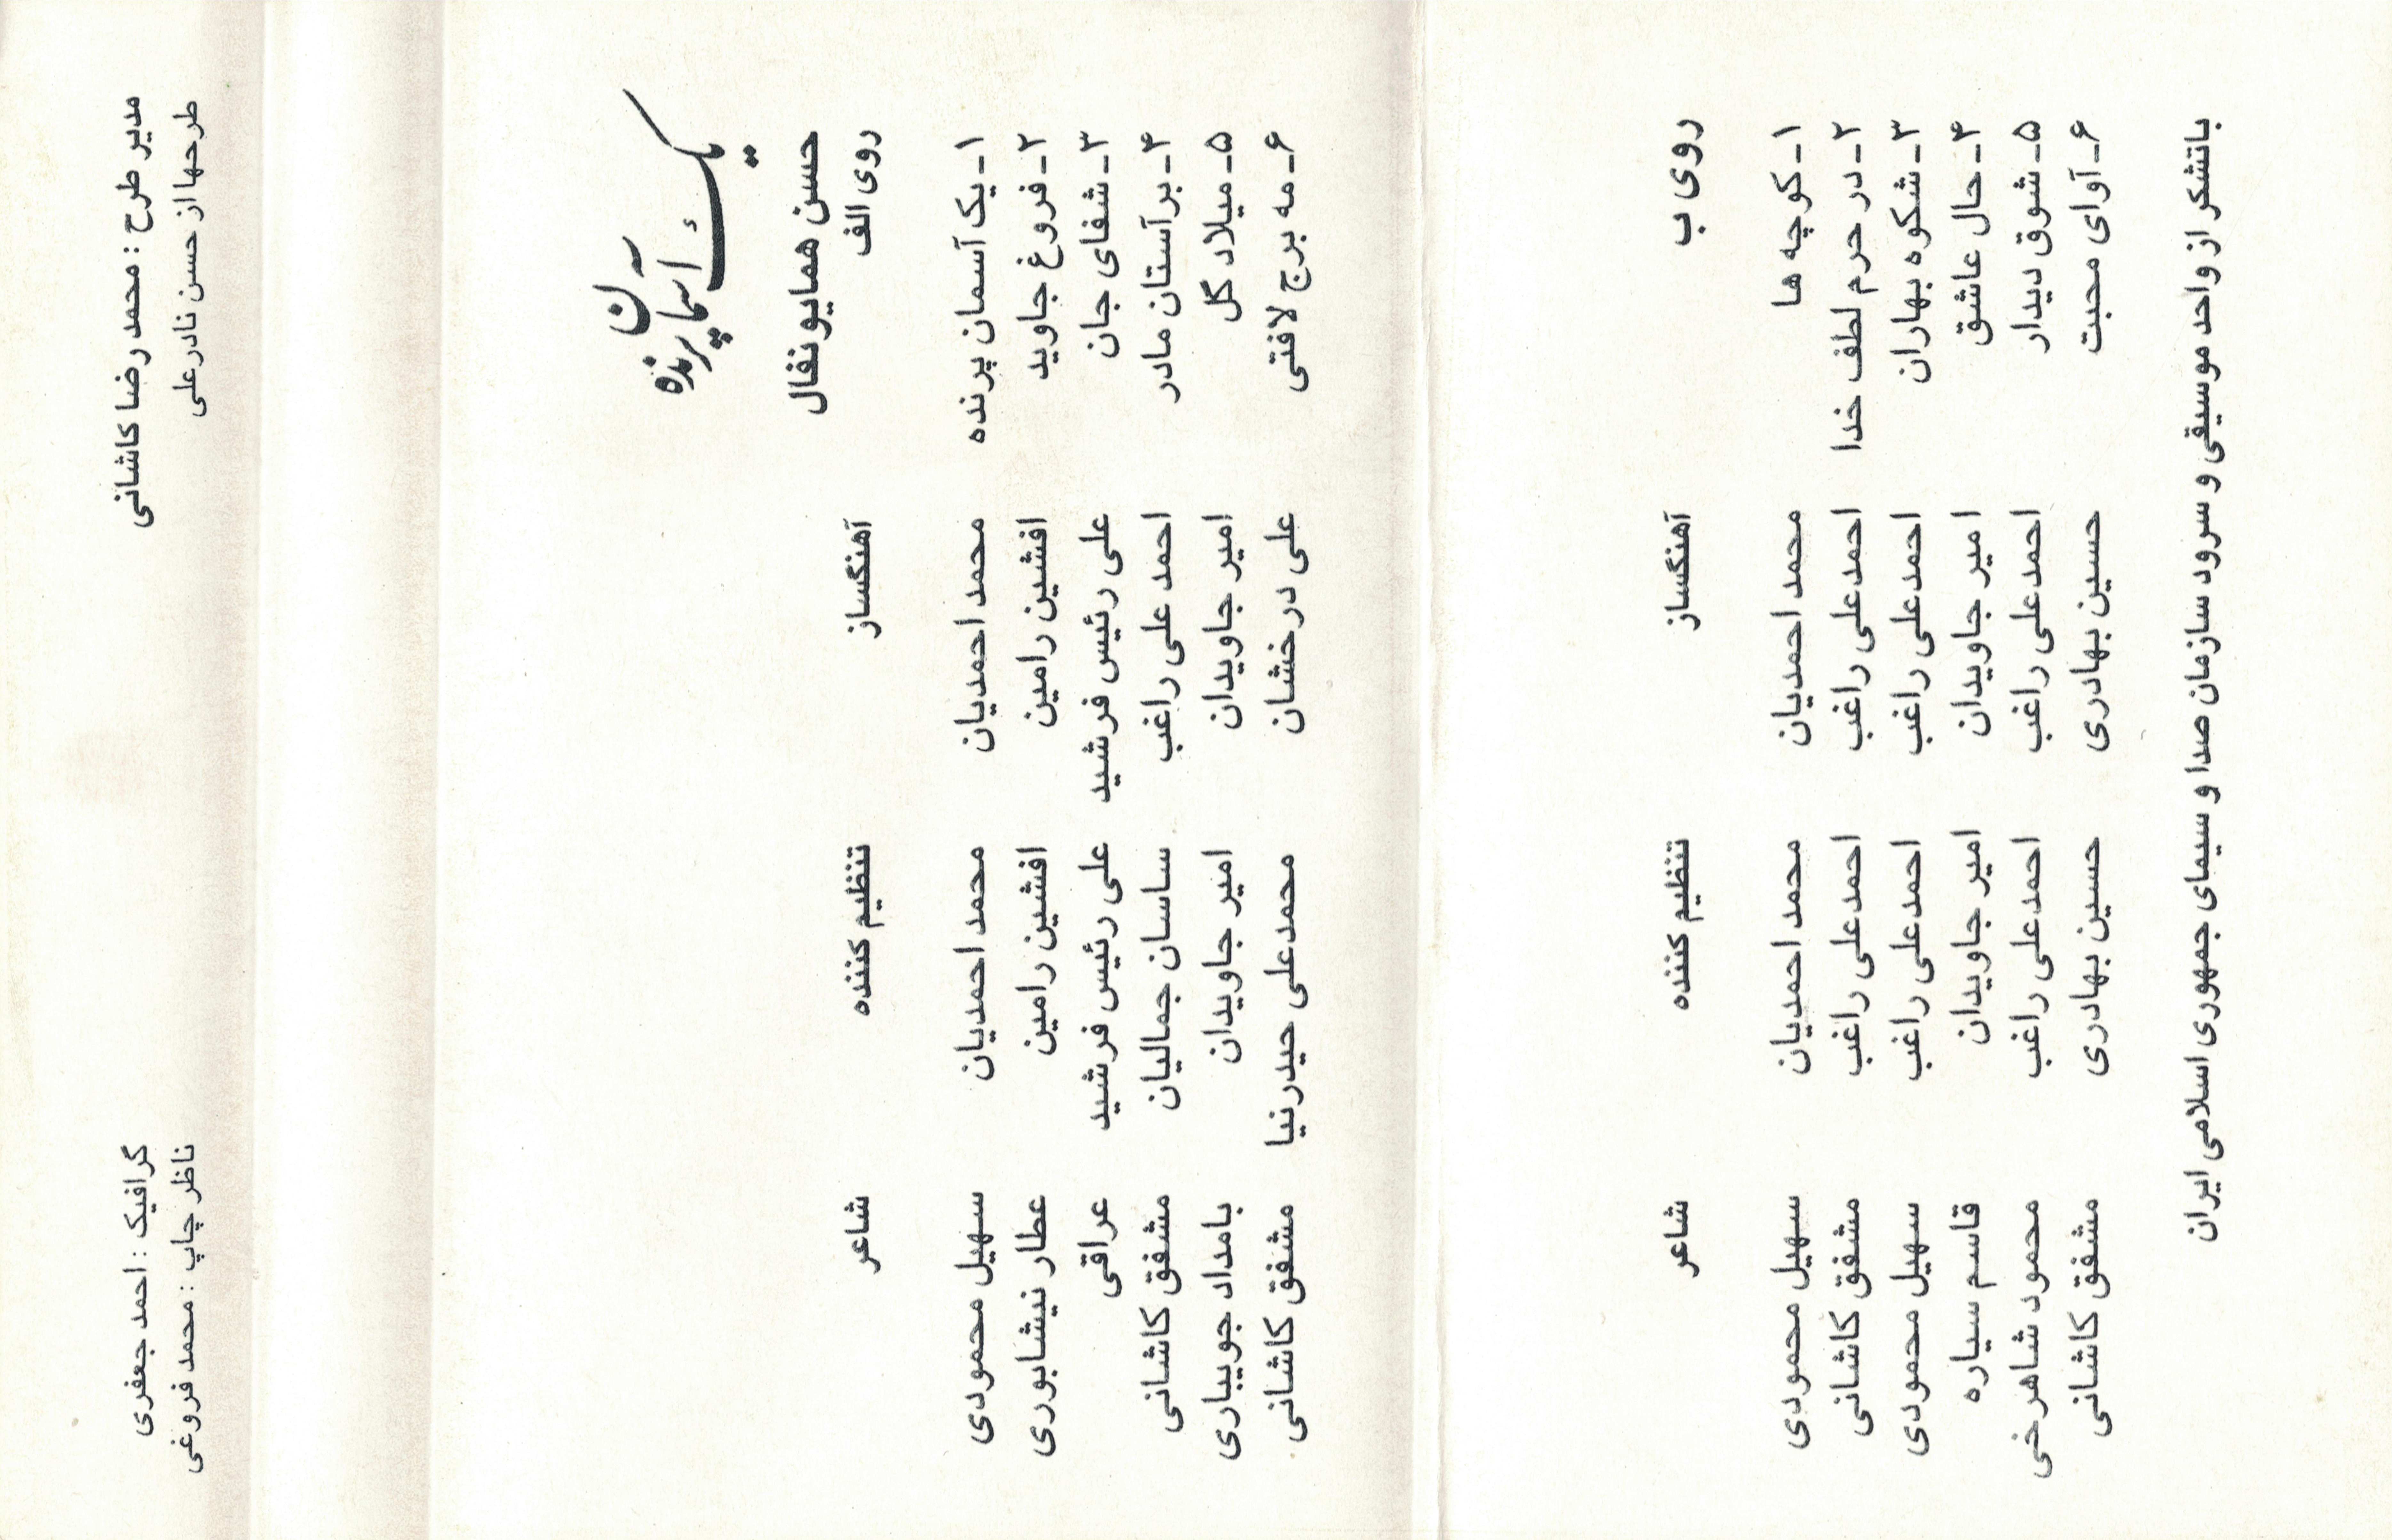 مدیر طرح : محمد رضا کاشانی
گرافیک : احمد جعفری
طرحها از حسن نادرعلی
ناظر چاپ : محمد فروغی
یک آسمان پرنده
حسن همایونفال
روی الف آهنگساز تنظیم کننده شاعر
۱ـ یک آسمان پرنده محمد احمدیان محمد احمدیان سهیل محمودی
۲ـ فروغ جاوید افشین رامین افشین رامین عطار نیشابوری
۳ـ شفای جان علی رئیس فرشید علی رئیس فرشید عراقی
۴ـ برآستان مادر احمد علی راغب ساسان جمالیان مشفق کاشانی
۵ـ میلاد گل امیر جاویدان امیر جاویدان بامداد جویباری
۶ـ مه برج لافتی علی درخشان محمدعلی حیدرنیا مشفق کاشانی
روی ب آهنگساز تنظیم کننده شاعر
۱ـ کوچه ها محمد احمدیان محمد احمدیان سهیل محمودی
۲ـ در حرم لطف خدا احمدعلی راغب احمدعلی راغب مشفق کاشانی
۳ـ شکوه بهاران احمدعلی راغب احمدعلی راغب سهیل محمودی
۴ـ حال عاشق امیر جاویدان امیر جاویدان قاسم سیاره
۵ـ شوق دیدار احمدعلی راغب احمدعلی راغب محمود شاهرخی
۶ـ آوای محبت حسین بهادری حسین بهادری مشفق کاشانی
باتشکر از واحد موسیقی و سرود سازمان صدا و سیمای جمهوری اسلامی ایران